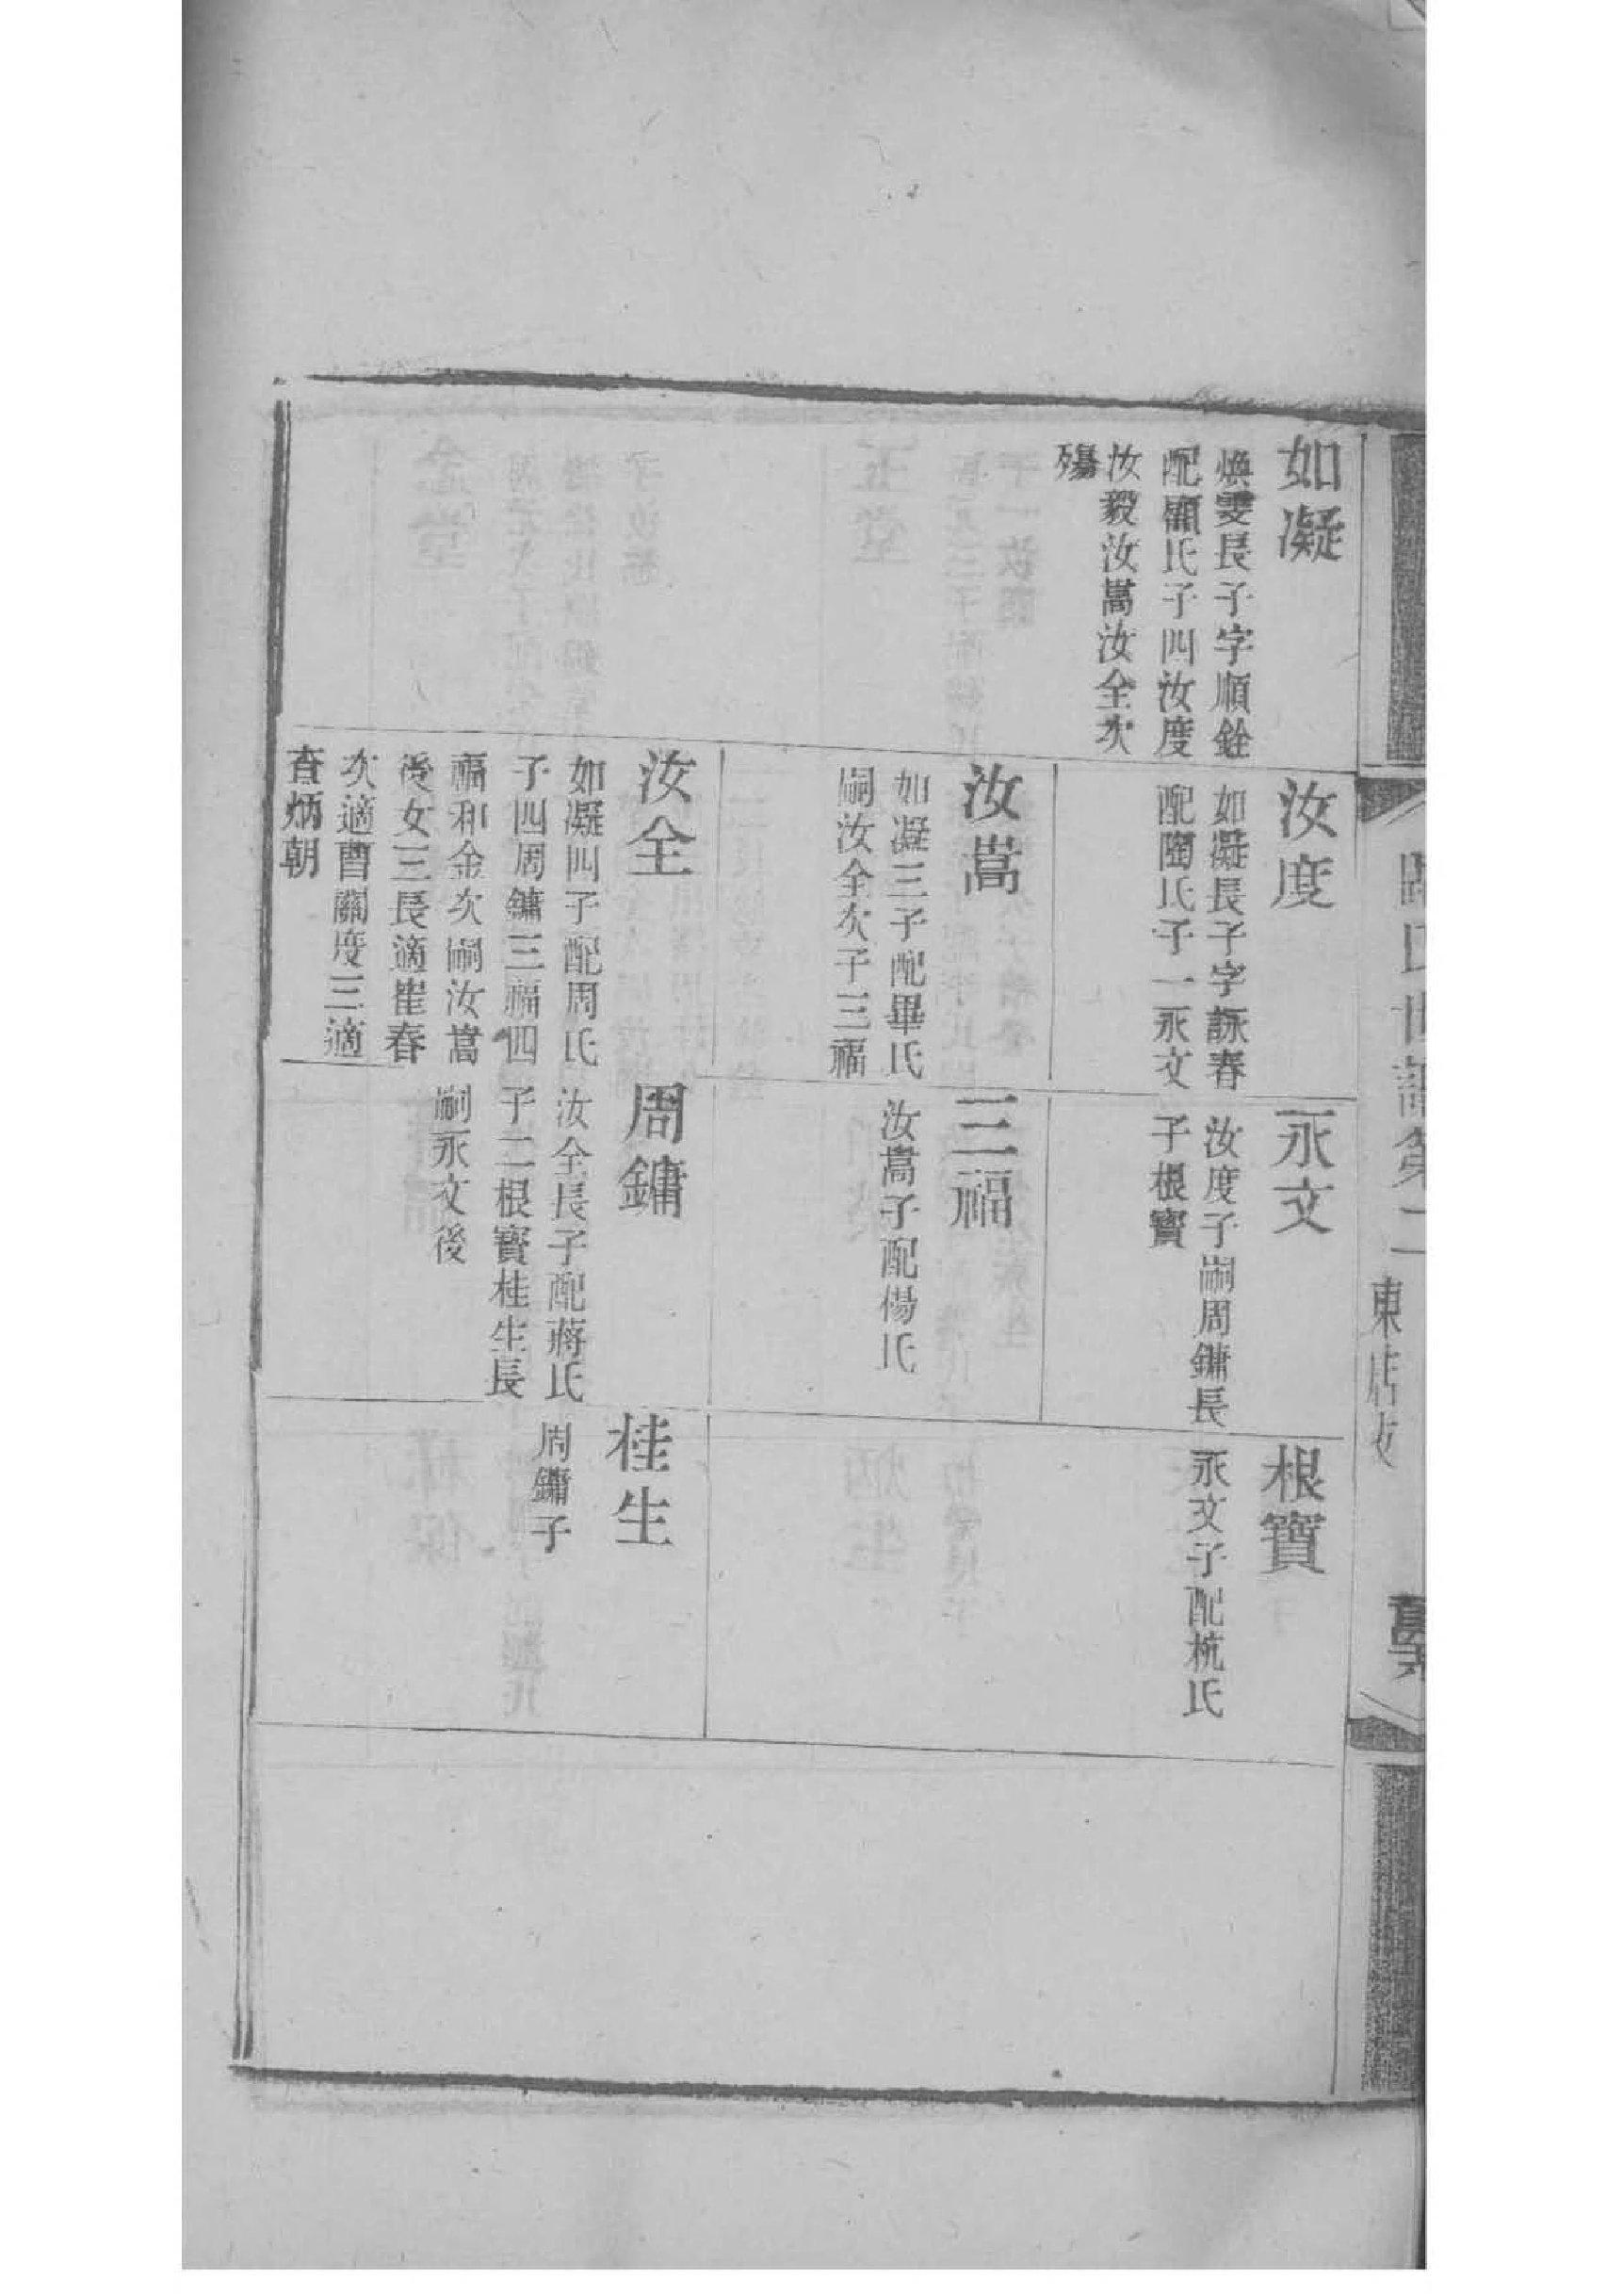 如凝
煥雯長子字順銓
配顧氏子四汝度
汝毅汝嵩汝全次
殤
汝度
如凝長子字詠春
配陶氏子一永文
汝嵩
如凝三子配畢氏
嗣汝全次子三福
汝全
如凝四子配周氏
子四周鏞三福四
福和金次嗣汝嵩
後女三長適崔春
次適曹關度三適
查炳朝
永文
汝度子嗣周鏞長
子根寶
三福
汝嵩子配楊氏
周鏞
汝全長子配蔣氏
子二根寶桂生長
嗣永文後
根寶
永文子配杭氏
桂生
周鏞子
氏世譜第二
東店